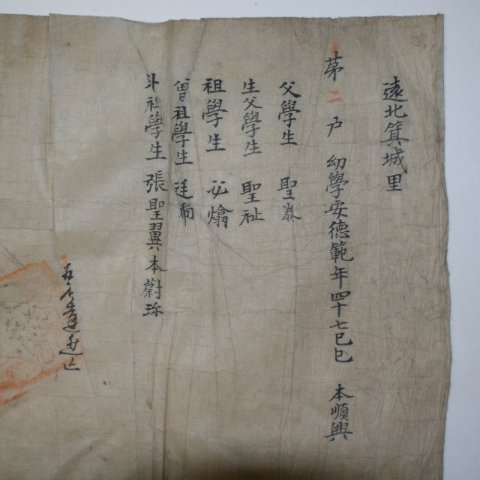 遠北箕城里
第二戶 幼學安德範年四十七己巳 本順興
父學生 聖泰
生父學生 聖祉
祖學生 必熻
曾祖學生 廷爾
外祖學生 張聖翼 本蔚珍